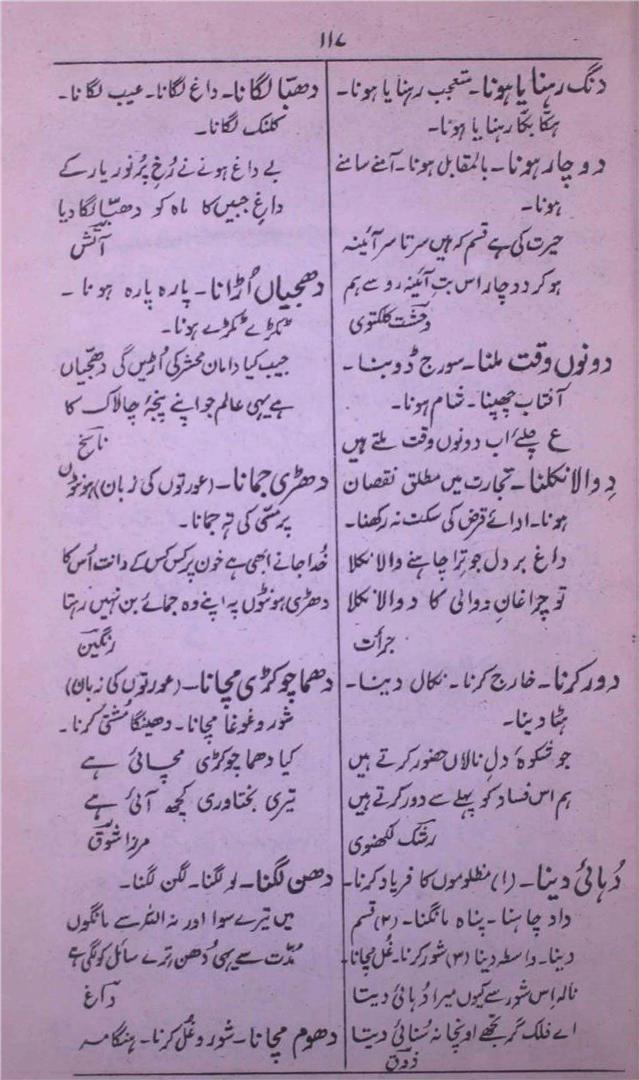 ۱۱۷
دنگ رہنا یا ہونا۔ متعجب رہنا یا ہونا۔
ہکّا بکّا رہنا یا ہونا۔
دو چار ہونا۔ بالمقابل ہونا۔ آمنے سامنے
ہونا۔
حیرت کی ہے قسم کہ ہیں سر تا سر آئینہ
ہو کر دو چار اس بتِ آئینہ رو سے ہم
وحشت کلکتوی
دونوں وقت ملنا۔ سورج ڈوبنا۔
آفتاب چھپنا۔ شام ہونا۔
ع چلے اب دونوں وقت ملتے ہیں
دِوالا نکلنا۔ تجارت میں مطلق نقصان
ہونا۔ ادائے قرض کی سکت نہ رکھنا۔
داغ بر دل جو ترا چاہنے والا نکلا
تو چراغانِ دوالی کا دوالا نکلا
جرأت
دور کرنا۔ خارج کرنا۔ نکال دینا۔
ہٹا دینا۔
جو شکوۂ دلِ نالاں حضور کرتے ہیں
ہم اس فساد کو پہلے سے دور کرتے ہیں
رشک لکھنوی
دُہائی دینا۔ (۱) مظلوموں کا فریاد کرنا۔
داد چاہنا۔ پناہ مانگنا۔ (۲) قسم
دینا۔ واسطہ دینا (۳) شور کرنا۔ غُل مچانا۔
نالہ اِس شور سے کیوں میرا دُہائی دیتا
اے فلک گر تجھے اونچا نہ سُنائی دیتا
ذوق
دھبّا لگانا۔ داغ لگانا۔ عیب لگانا۔
کلنک لگانا۔
بے داغ ہونے نے رُخِ پُر نور یار کے
داغِ جبیں کا ماہ کو دھبّا لگا دیا
آتش
دھجیاں اُڑانا۔ پارہ پارہ ہونا۔
ٹکڑے ٹکڑے ہونا۔
جیب کیا دامانِ محشر کی اُڑیں گی دھجّیاں
ہے یہی عالم جو اپنے پنجۂ چالاک کا
ناسخ
دھڑی جمانا۔ (عورتوں کی زبان) ہونٹوں
پر مسّی کی تہ جمانا۔
خُدا جانے ابھی ہے خون پر کس کس کے دانت اُس کا
دھڑی ہونٹوں پہ اپنے وہ جمائے بن نہیں رہتا
رنگین
دھما چوکڑی مچانا۔ (عورتوں کی زبان)
شور و غوغا مچانا۔ دھینگا مُشتی کرنا۔
کیا دھما چوکڑی مچائی ہے
تیری بختاوری کچھ آئی ہے
مرزا شوق
دھن لگنا۔ لو لگنا۔ لگن لگنا۔
میں تیرے سوا اور نہ اللہ سے مانگوں
مُدّت سے یہی دُھن ترے سائل کو لگی ہے
داغ
دھوم مچانا۔ شور و غُل کرنا۔ ہنگامہ